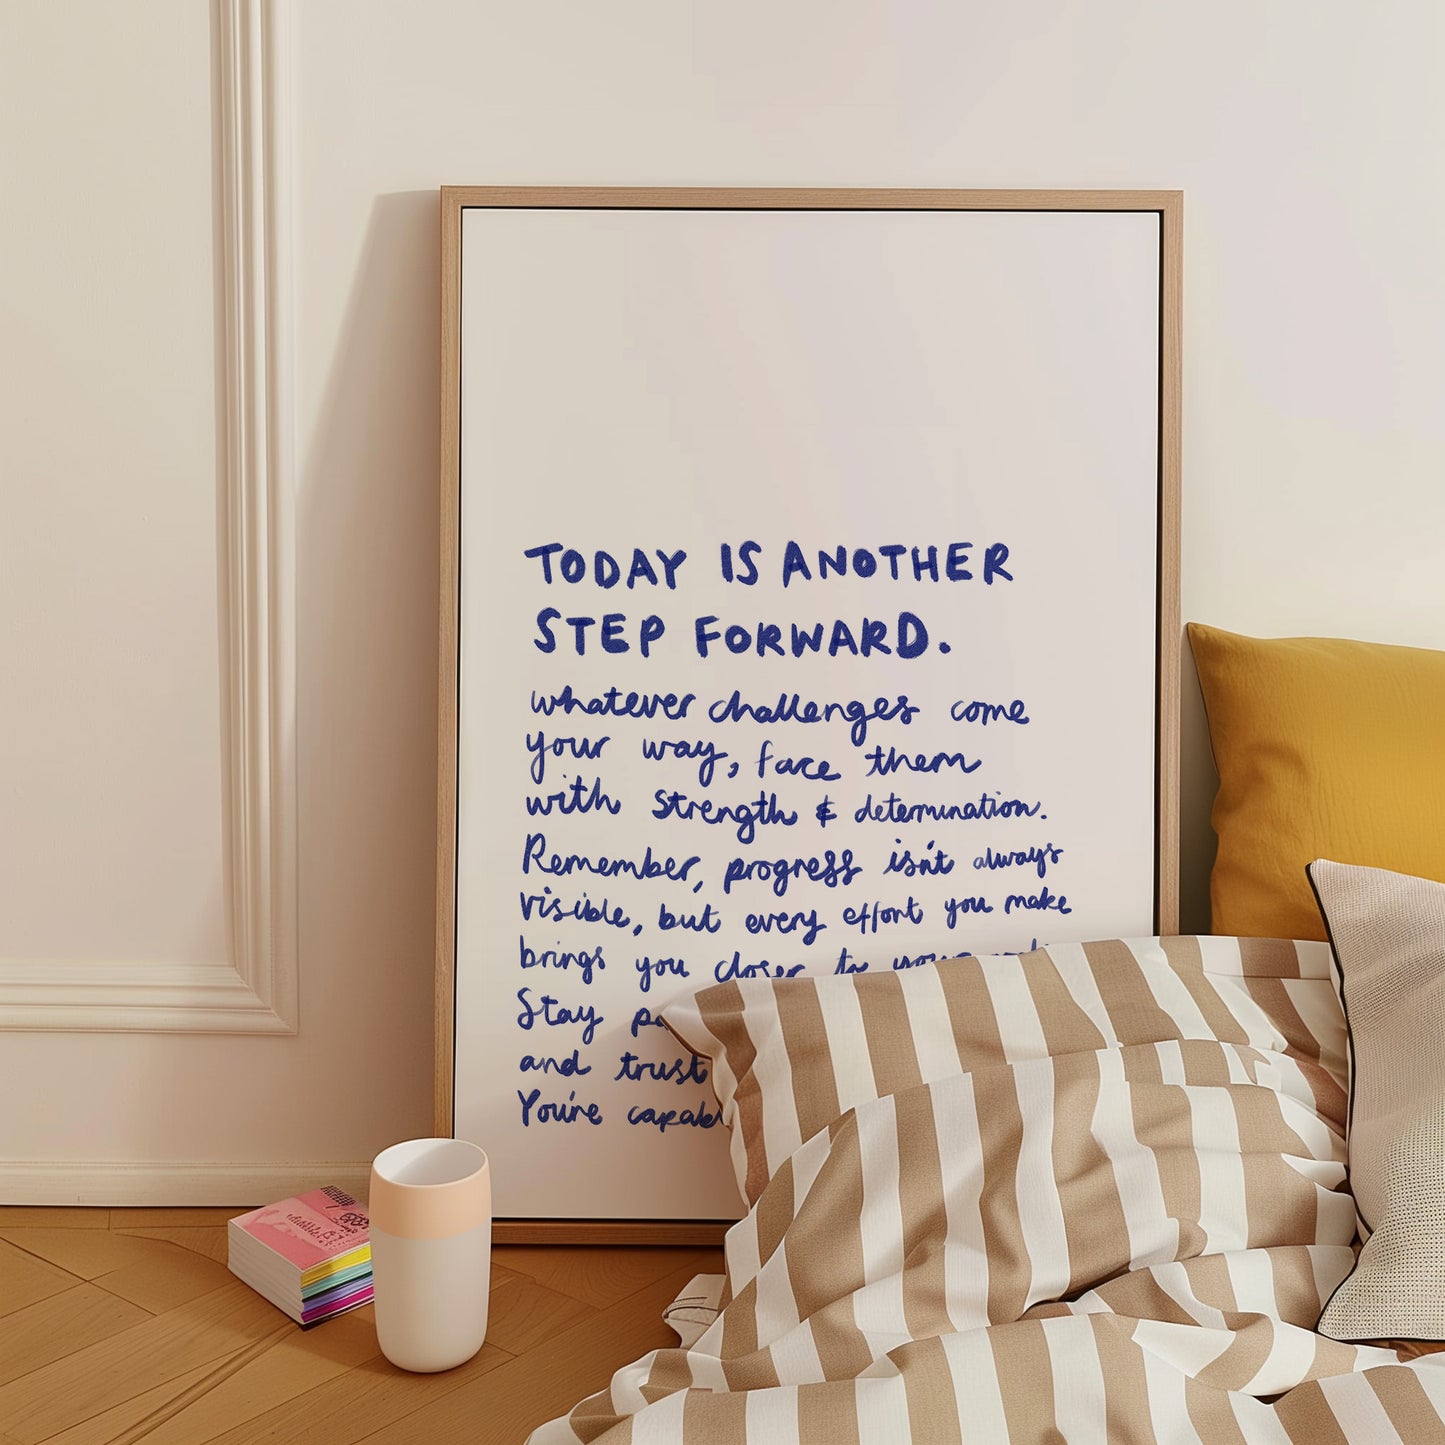 TODAY IS ANOTHER
STEP FORWARD.
whatever challenges come
your way, face them
with strength & determination.
Remember, progress isn't always
visible, but every effort you make
brings you closer to your
Stay
and trust
You're